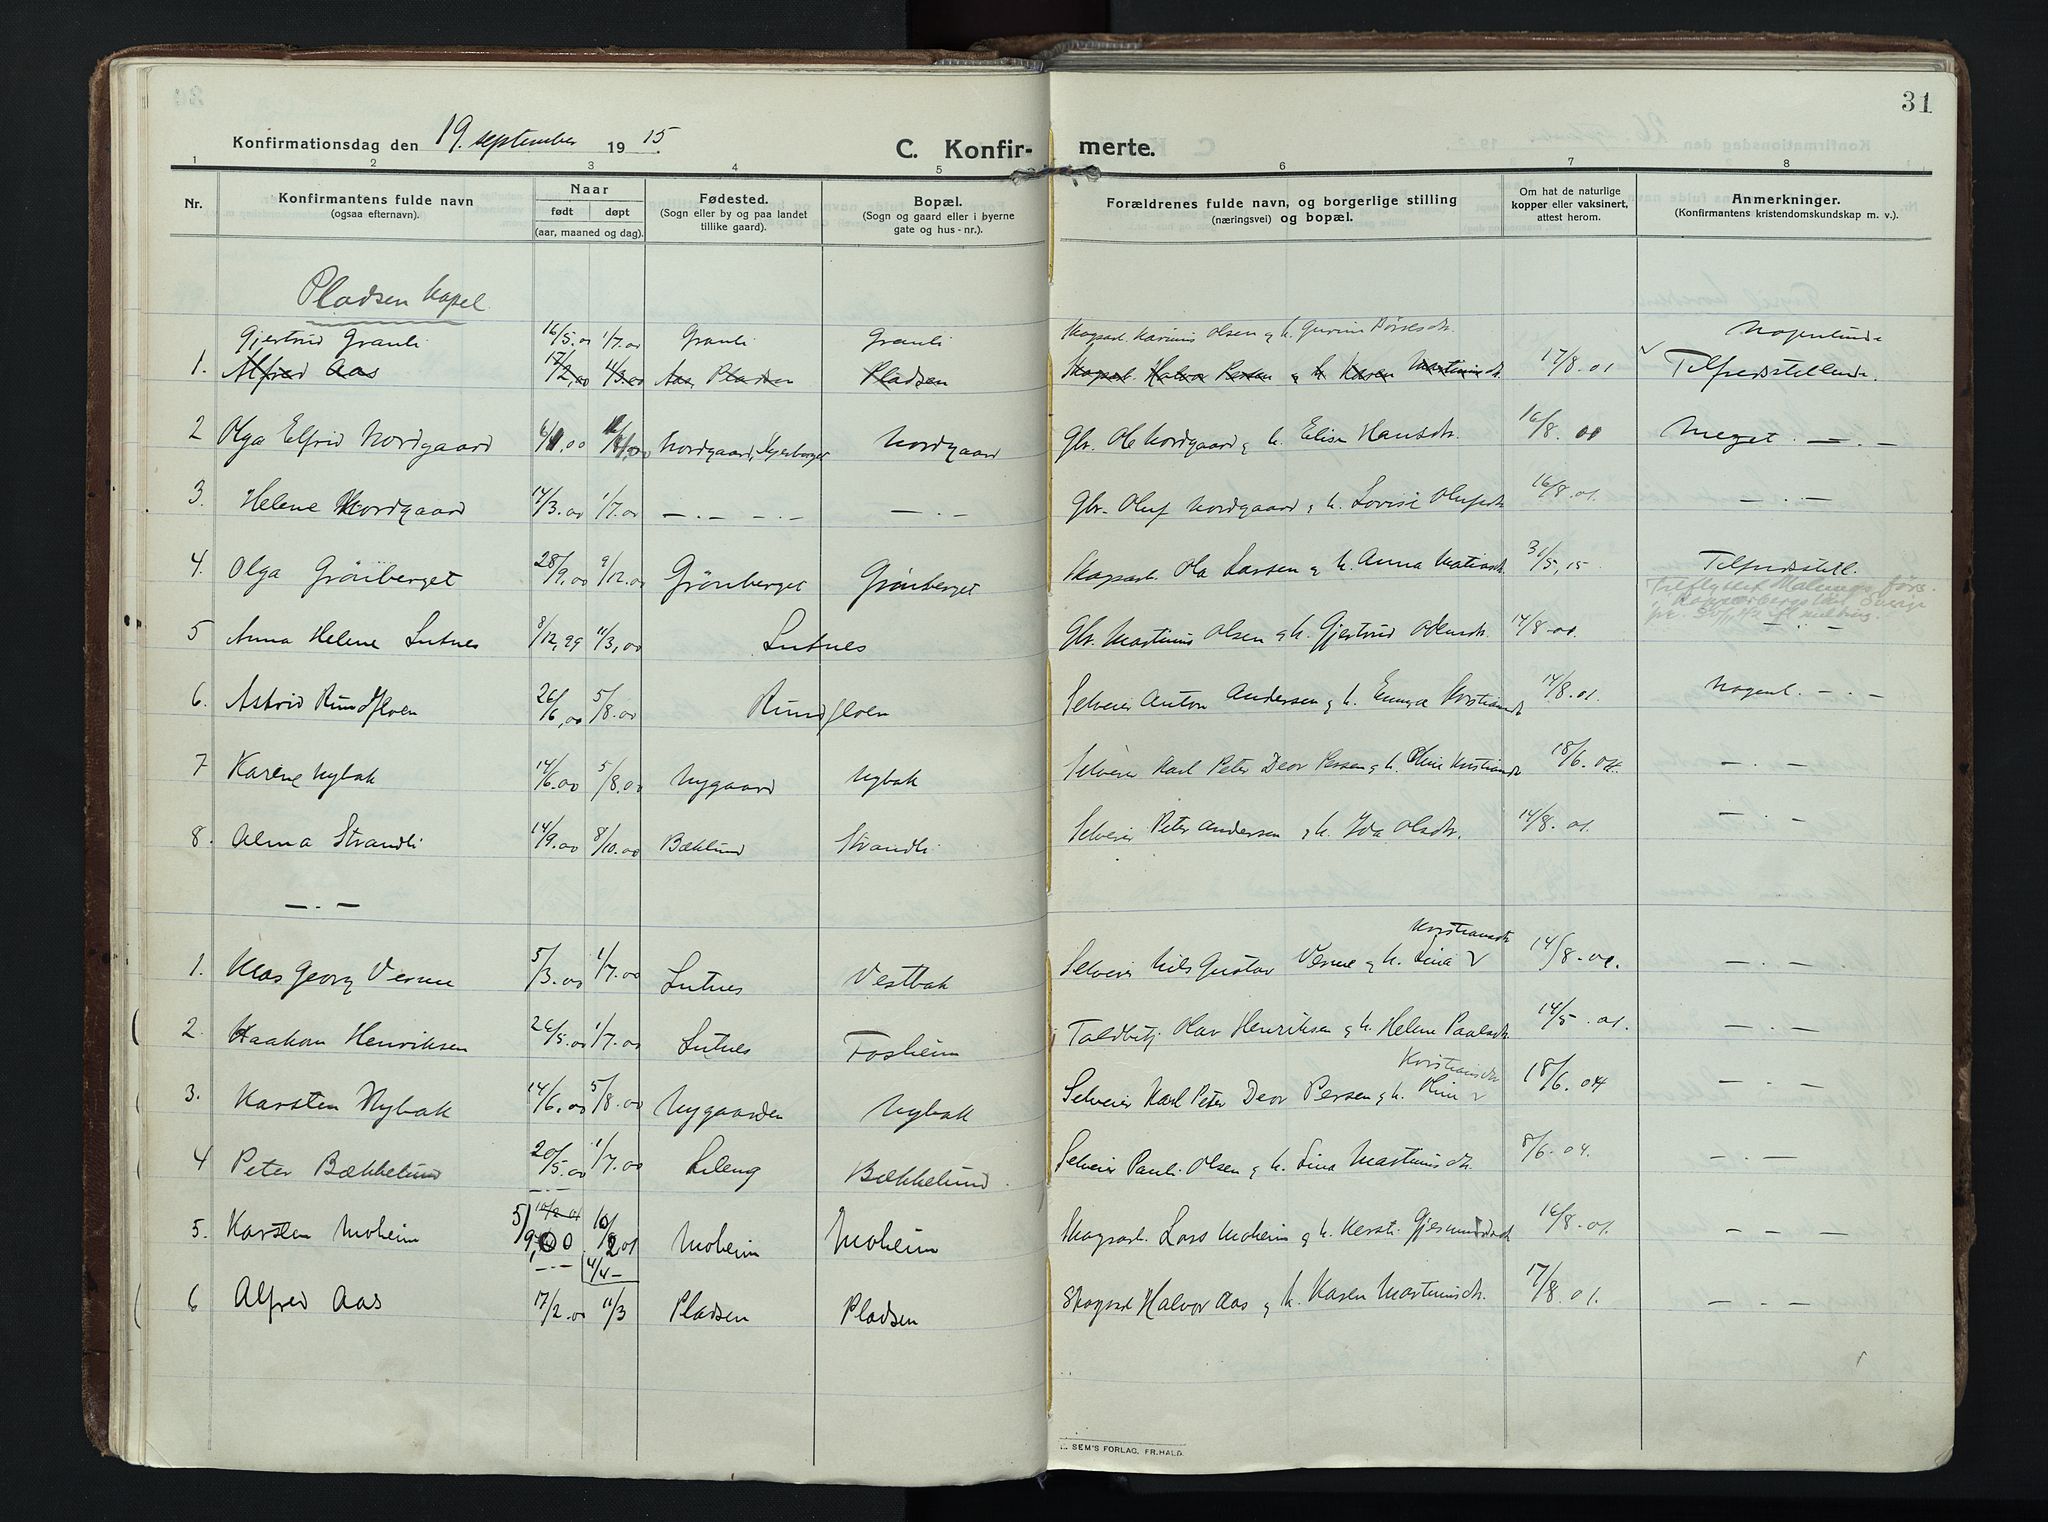 31
Konfirmationsdag den 19. september 1915
C. Konfir- merte.
1 2 3 4 5 6 7 8
Nr.
Konfirmantens fulde navn
(ogsaa efternavn).
Naar
født døpt
(aar, maaned og dag).
Fødested.
(Sogn eller by og paa landet
tillike gaard).
Bopæl.
(Sogn og gaard eller i byerne
gate og hus-nr.).
Forældrenes fulde navn, og borgerlige stilling
(næringsvei) og bopæl.
Om hat de naturlige
kopper eller vaksinert,
attest herom.
Anmerkninger.
(Konfirmantens kristendomskundskap m. v.).
Pladsen Kapel
Gjertrud Granli 16/5.00 1/7.00 Granli Granli Skogsarb. Olsen & h. Gurine
1. Alfred Aas 17/2.00 11/3.00 Aas, Pladsen Pladsen Skogsarb. Halvor Persen & h. Karen Martinusdt. 17/8.01 Tilfredsstillende.
2 Olga Elfrid Nordgaard Nordgaard Nordgaard Gbr. Ole Nordgaard & h. Elise Hansdt. 16/8.00 Meget — . —
3. Helene Nordgaard 14/3.00 1/7.00 — . — — . — — . — Gbr. Oluf Nordgaard & h. Lovise Olufsdt. 16/8.01. — . —
4. Olga Grönberget 28/9.00 9/12.00 Grönberget Grönberget Skogsarb. Ola Larsen & h. Anna 31/5.15 Tilfredsstill.
5 Anna Helene Lutnes 8/12.99 11/3.00 Lutnes Gbr. Martinus Olsen & h. Gjertrud 14/8.01. — . —
6. Astrid Rundfloen 26/6.00 5/8.00 Rundfloen Selveier Anton Andersen & h. Emma Kristiansdt 14/8.01. Nogenl. — . —
7 Karene Nybak 14/6.00 5/8.00 Nygaard Nybak Selveier Karl Peter Deor Persen & h. Oline Kristiansdt 18/6.04. — . —
8. Alma Strandli 14/9.00 8/10.00 Bæklund Strandli Selveier Peter Andersen & h. Ida Olsdt. 14/8.01. — . —
— . —
Kristiansdt
1. Klas Georg Verme 5/3.00 1/7.00 Lutnes Vestbak Selveier Nils Gustav Verme & h. Lina 14/8.01. — . —
2. Haakon Henriksen 26/5.00 1/7.00 Lutnes Fosheim Toldbetj. Olav Henriksen & h. Helene Paulsdt 14/5.01. — . —
3. Karsten Nybak 14/6.00 5/8.00 Nygaarden Nybak Selveier Karl Peter Deor Persen & h. Oline Kristiansdt 18/6.04 — . —
4 Peter Bækkelund 20/5.00 1/7.00 Lileng Bækkelund. Selveier Pauli Olsen & h. Lina Martinusdt. 8/6.04. — . —
5. Karsten Moheim 5/9.00 Moheim Moheim Skogsarb. Lars Moheim & h. Kersti Gjermundsdt 16/8.01. — — —
6 Alfred Aas 17/2.00 11/3 Pladsen Pladsen Skogsarb Halvor Aas & h. Karen Martinusdt. 17/8.01. — . —
SEM'S FORLAG, FR.HALD.